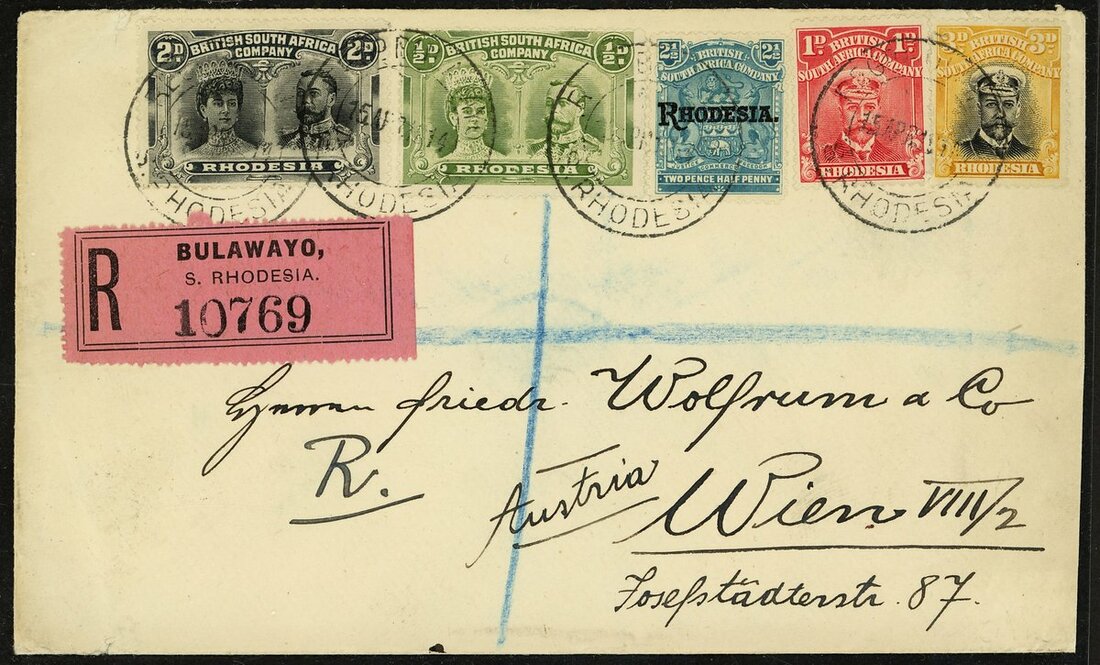 2D. BRITISH SOUTH AFRICA COMPANY 2D.
RHODESIA
½D. BRITISH SOUTH AFRICA COMPANY ½D.
RHODESIA
2½ BRITISH SOUTH AFRICA COMPANY 2½
RHODESIA.
JUSTICE COMMERCE FREEDOM
TWO PENCE HALF PENNY
1D. BRITISH SOUTH AFRICA COMPANY 1D.
RHODESIA
3D. BRITISH SOUTH AFRICA COMPANY 3D.
RHODESIA
15 AP 14
S. RHODESIA
RHODESIA
RHODESIA
RHODESIA
R
BULAWAYO,
S. RHODESIA.
10769
Friedr. Wolfrum a Co
R.
Austria
Wien VIII/2
Josefstädterstr. 87.